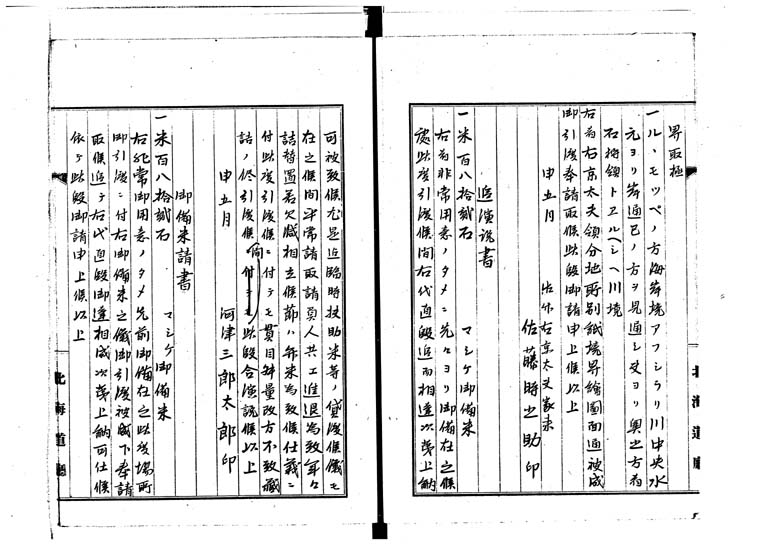 界取極
一ル、モツペノ方海岸境アフシラリ川中央水
元ヨリ岸通巳ノ方ヲ見通シ夫ヨリ奥之方者
石狩領トヱルヘシヘ川境
右者右京太夫領分地所別紙境界繪圖面通被成
御引渡奉請取候此段御請申上候以上
申五月 佐竹右京太夫家来
佐藤時之助印
追演説書
一米百八拾貳石 マシケ御備米
右者非常用意ノタメニ先々ヨリ御備在之候
處此度引渡候間右代直段追而相達次第上納
可被致候尤是迄臨時扶助米等ノ貸渡候儀モ
在之候間平常請取請負人共エ進退為致年々
詰替置若欠減相立候節ハ弁米為致候仕義ニ
付此度引渡候ニ付テモ貫目斛量改方不致蔵
詰ノ侭引渡候間付テモ此段合演説候以上
申五月 河津三郎太郎印
御備米請書
一米百八拾貳石 マシケ御備米
右非常御用意ノタメ先前御備在之此度場所
御引渡ニ付右御備米之儀御引渡被成下奉請
取候追テ右代直段御達相成次第上納可仕候
依テ此段御請申上候以上
北海道廳
北海道廳